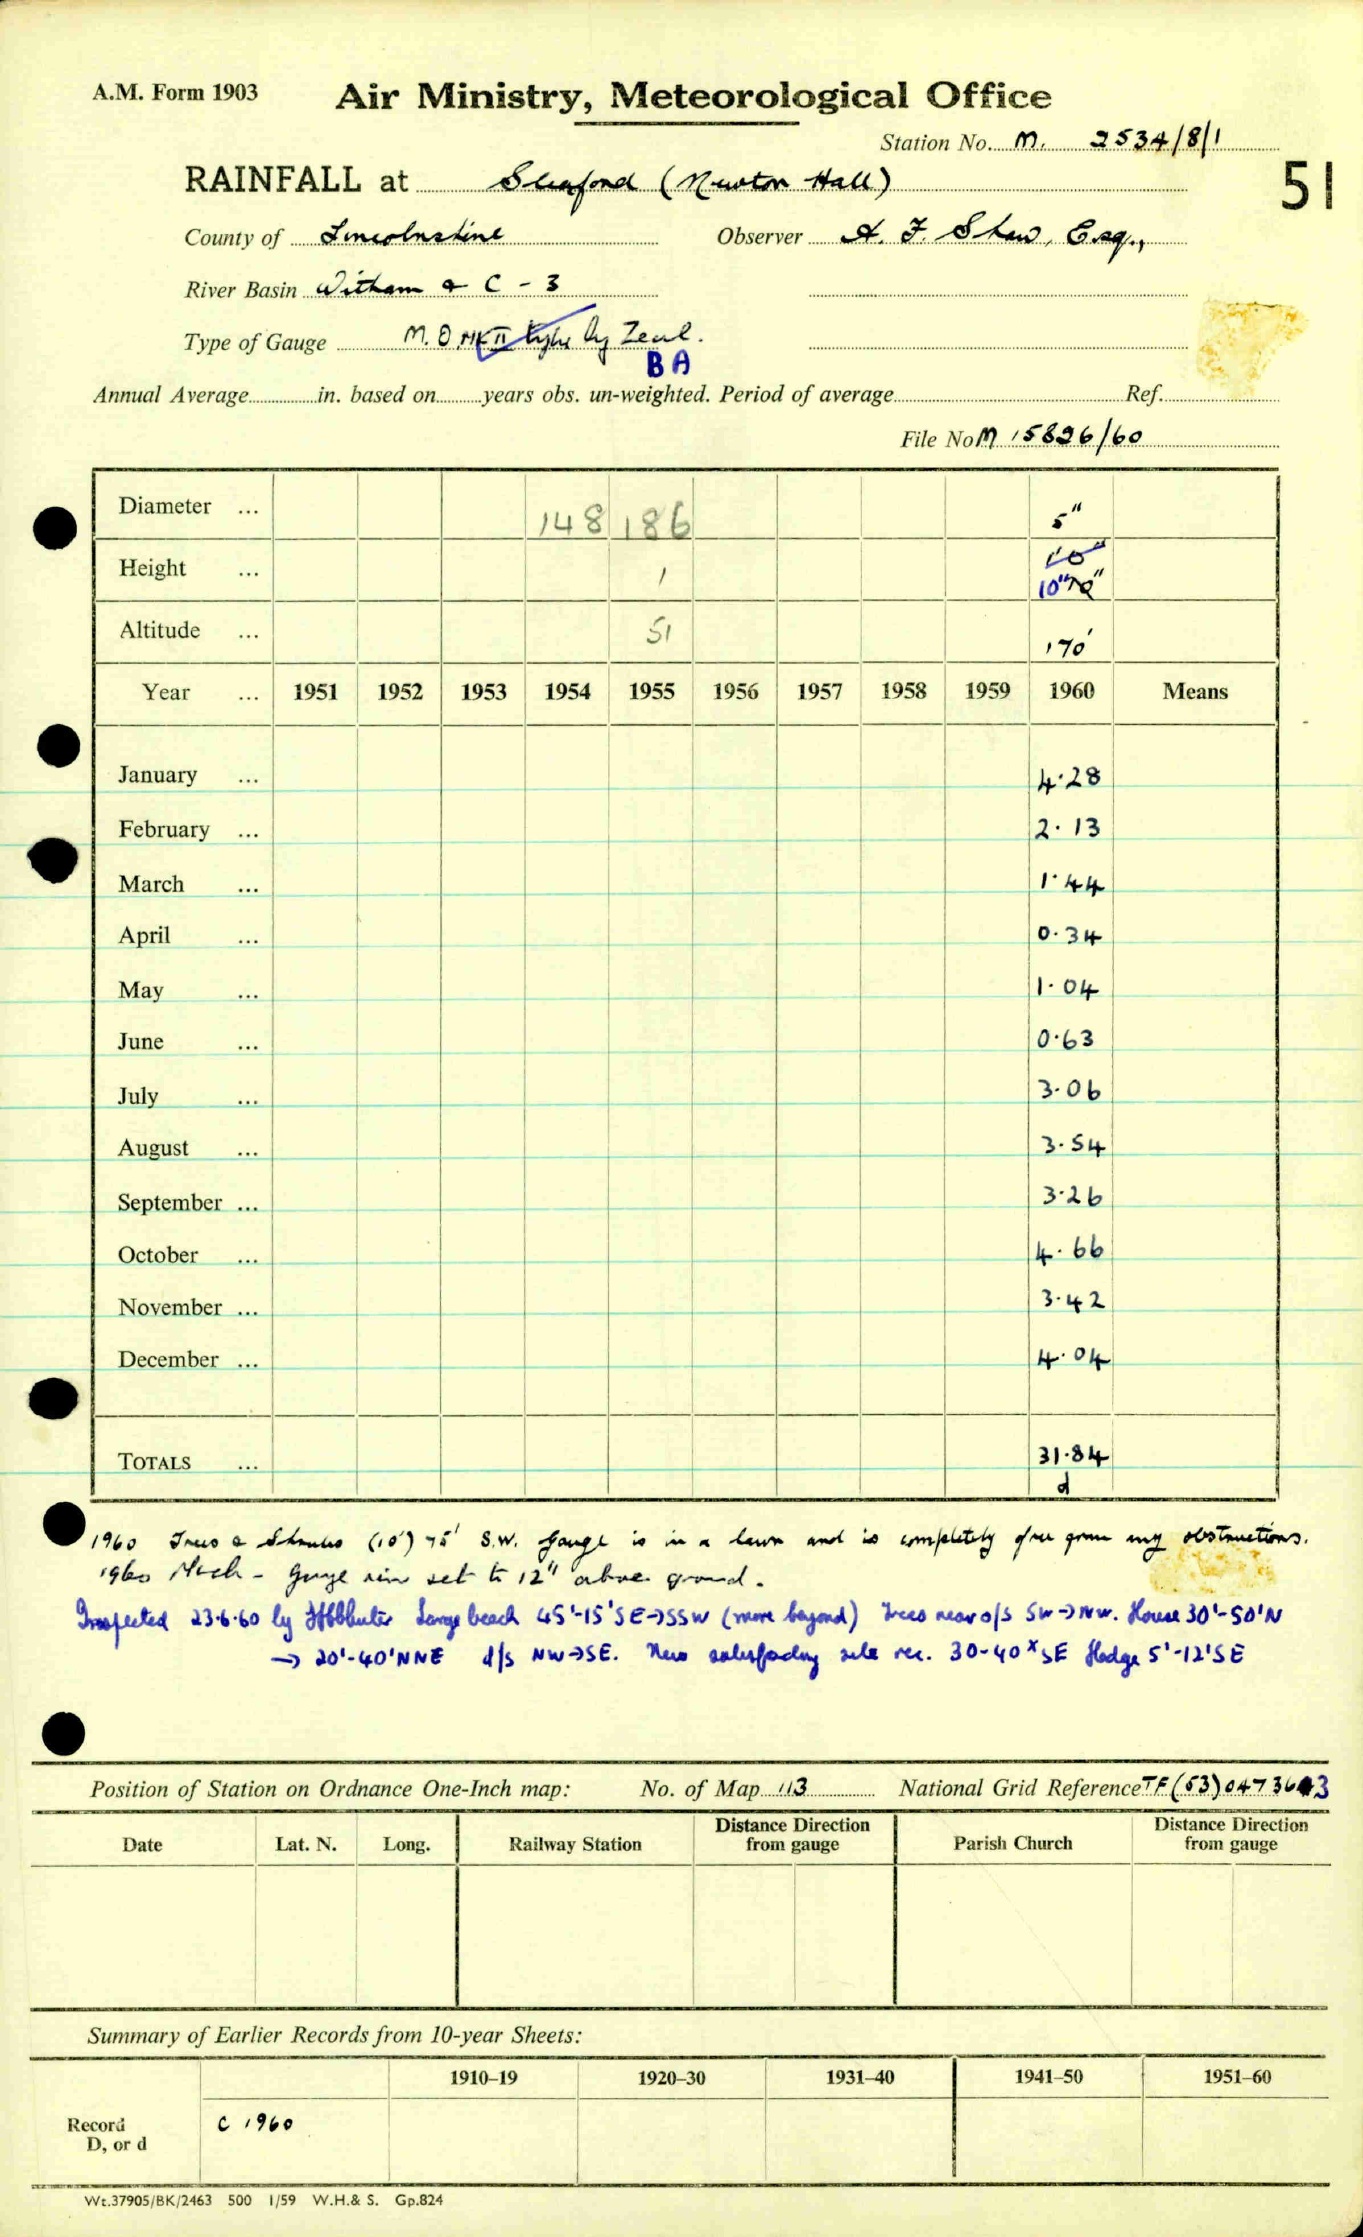 A.M. Form 1903 Air Ministry, Meteorological Office
Station No. M. 2534/8/1
RAINFALL at Sleaford (Newton Hall) 51
County of Lincolnshire Observer A. F. Shaw, Esq.,
River Basin Witham & C - 3
Type of Gauge M.O. MK II by Zeal.
BA
Annual Average in. based on years obs. un-weighted. Period of average Ref.
File No M 15826/60
Diameter ... 148 186 5"
Height ... 1 10"
10"
Altitude ... 51 170'
Year ... 1951 1952 1953 1954 1955 1956 1957 1958 1959 1960 Means
January ... 4.28
February ... 2.13
March ... 1.44
April ... 0.34
May ... 1.04
June ... 0.63
July ... 3.06
August ... 3.54
September ... 3.26
October ... 4.66
November ... 3.42
December ... 4.04
TOTALS ... 31.84
d
1960 Trees & Shrubs (10') 75' S.W. Gauge is in a lawn and is completely free from any obstructions.
1960 March - Gauge rim set to 12" above ground.
Inspected 23.6.60 by Large beech 45'-15'SE→SSW (more beyond) Trees near o/s SW→NW. House 30'-50'N
→ 20'-40'NNE d/s NW→SE. New satisfactory site rec. 30-40x SE Hedge 5'-12'SE
Position of Station on Ordnance One-Inch map: No. of Map 113 National Grid Reference TF(53)047363
Date Lat. N. Long. Railway Station Distance Direction from gauge Parish Church Distance Direction from gauge
Summary of Earlier Records from 10-year Sheets:
1910–19 1920–30 1931–40 1941–50 1951–60
Record C 1960
D, or d
Wt.37905/BK/2463 500 1/59 W.H.& S. Gp.824